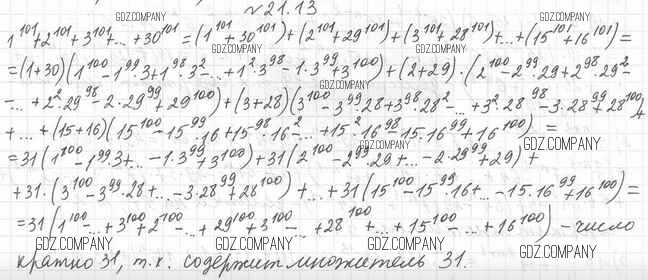 №21.13
GDZ.COMPANY
1^101+2^101+3^101+...+30^101 =(1^101+30^101)+(2^101+29^101)+(3^101+28^101)+...+(15^101+16^101)=
GDZ.COMPANY GDZ.COMPANY
=(1+30)(1^100-1^99·3+1^98·3^2-...+1^2·3^98-1·3^99+3^100)+(2+29)·(2^100-2^99·29+2^98·29^2-
GDZ.COMPANY
-...+2^2·29^98-2·29^99+29^100)+(3+28)(3^100-3^99·28+3^98·28^2-...+3^2·28^98-3·28^99+28^100)+
+...+(15+16)(15^100-15^99·16+15^98·16^2-...+15^2·16^98-15·16^99+16^100)=
GDZ.COMPANY GDZ.COMPANY
=31(1^100-1^99·3+...-1·3^99+3^100)+31(2^100-2^99·29+...-2·29^99+29)+
+31·(3^100-3^99·28+...-3·28^99+28^100)+...+31(15^100-15^99·16+...-15·16^99+16^100)=
=31(1^100-...+3^100+2^100-...+29^100+3^100-...+28^100+...+15^100-...+16^100) - число
GDZ.COMPANY GDZ.COMPANY GDZ.COMPANY GDZ.COMPANY
кратно 31, т.к. содержит множитель 31.